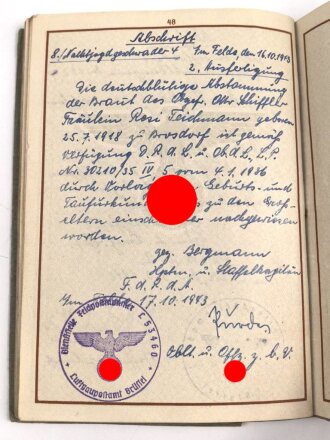 48
Abschrift
8./Nachtjagdgeschwader 4 Im Felde, den 16.10.1943
2. Ausfertigung
Die deutschblütige Abstammung
der Braut des Ogefr. Otto
Fräulein Rosi Teichmann geboren
25.7.1918 zu Brosdorf ist gemäß
Verfügung D.R.d.L. u. Ob.d.L. L.P.
Nr. 30210/35 IV, 5 vom 4.1.1936
durch Vorlage Geburts- und
Taufurkunden zu den Groß-
eltern nachgewiesen
worden.
gez. Bergmann
Hptm. u. Staffelkapitän
F.d.R.d.A.
17.10.1943
Oblt. u. Offz. z. b. V.
Dienststelle Feldpostnummer L 53460
Luftgaupostamt Brüssel